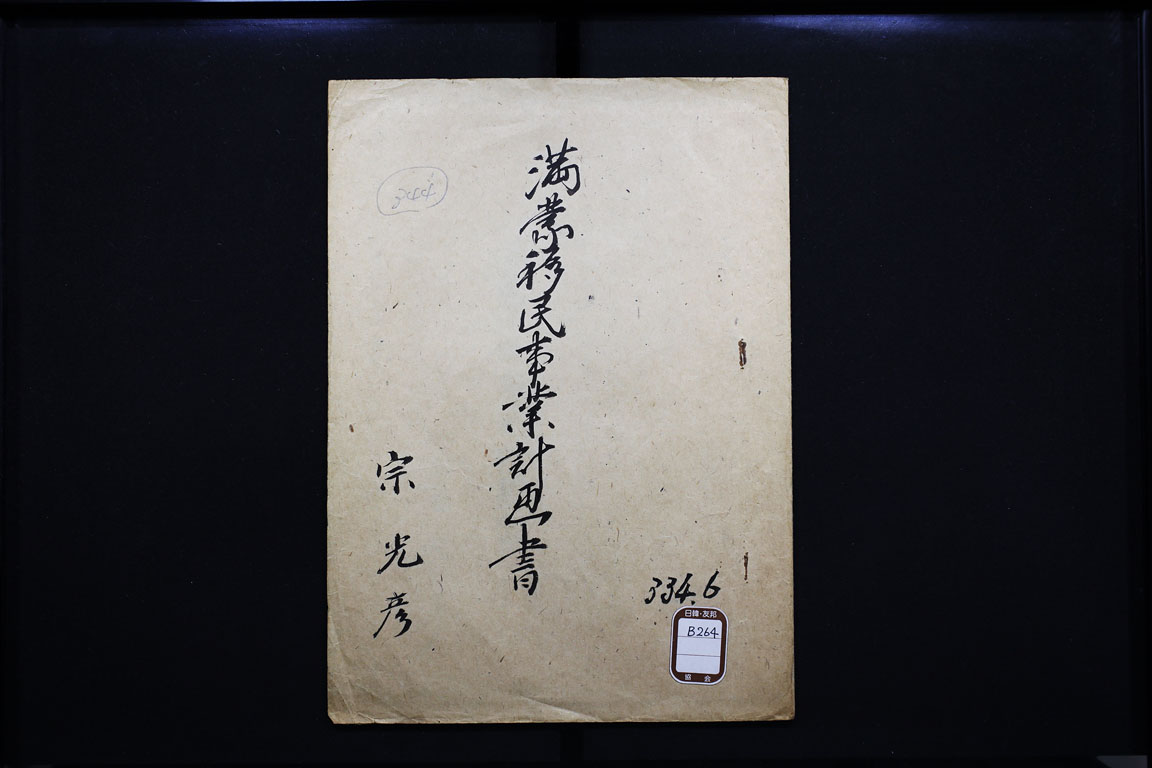 満蒙移民事業計画書
宗光彦
344
334.6
日韓・友邦
B264
協会